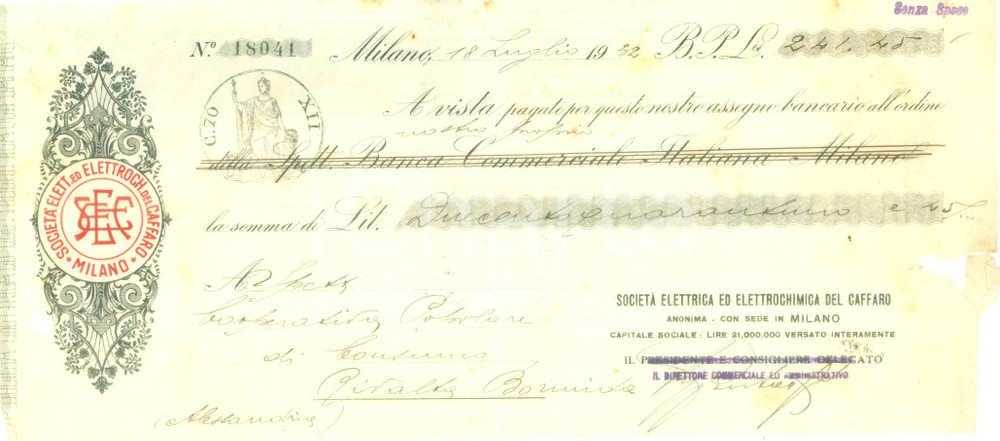 Senza Spese
Nº 18041 Milano, 18 Luglio 1932 B.P.Lit. 241.45
C. 70 XII
A vista pagate per questo nostro assegno bancario all'ordine
nostro proprio
della Spett. Banca Commerciale Italiana Milano
la somma di Lit. Duecentoquarantuno e 45
SOCIETÀ ELETT. ED ELETTROCH. DEL CAFFARO
MILANO
Spett
Cooperativa Popolare
di Consumo
Rivalta Bormida
(Alessandria)
SOCIETÀ ELETTRICA ED ELETTROCHIMICA DEL CAFFARO
ANONIMA - CON SEDE IN MILANO
CAPITALE SOCIALE: LIRE 21.000.000 VERSATO INTERAMENTE
IL PRESIDENTE E CONSIGLIERE DELEGATO
IL DIRETTORE COMMERCIALE ED AMMINISTRATIVO